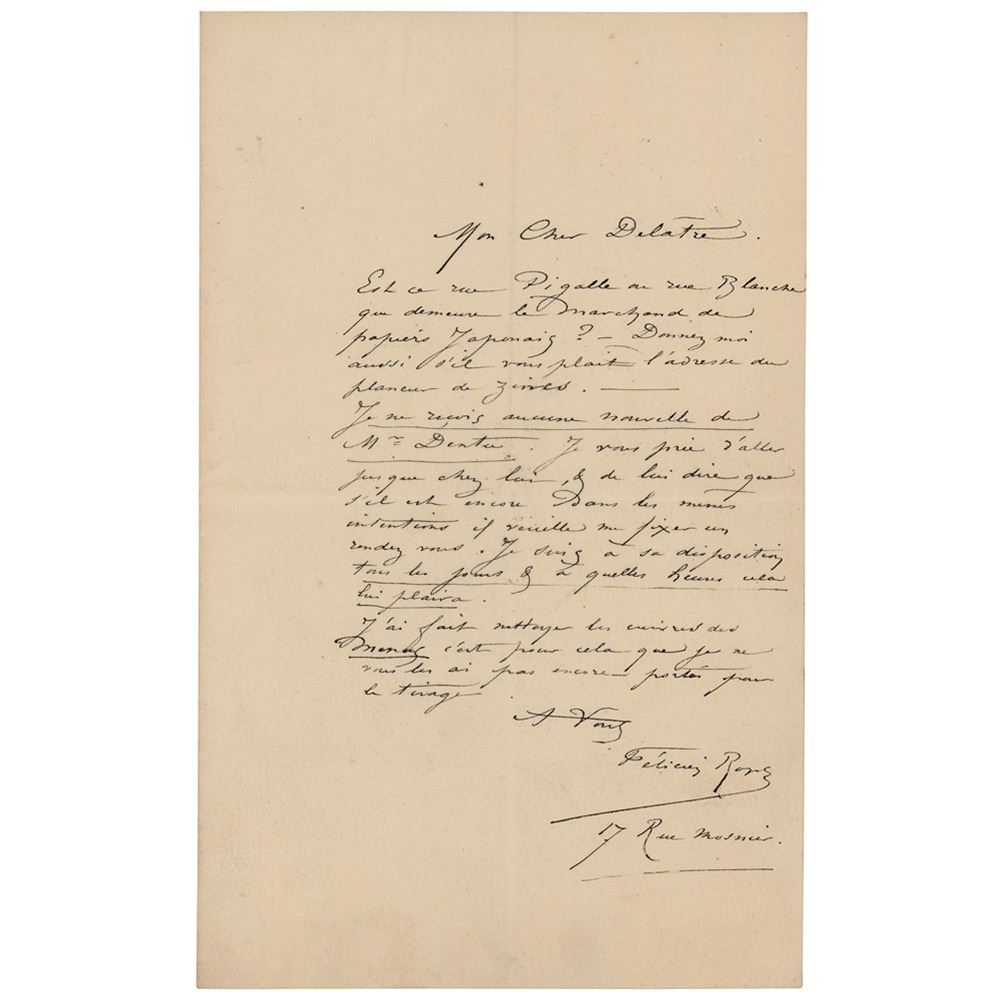 Mon Cher Delatre.
Est ce rue Pigalle ou rue Blanche
que demeure le marchand de
papiers Japonais ? — Donnez moi
aussi s'il vous plait l'adresse du
planeur de zincs. —
Je ne reçois aucune nouvelle de
Mr Dentu. Je vous prie d'aller
jusque chez lui, & de lui dire que
s'il est encore dans les mêmes
intentions il veuille me fixer un
rendez vous. Je suis à sa disposition
tous les jours & à quelles heures cela
lui plaira.
J'ai fait nettoyer les cuivres des
menus c'est pour cela que je ne
vous les ai pas encore portés pour
le tirage
A Vous
Félicien Rops
17 Rue Mosnier.